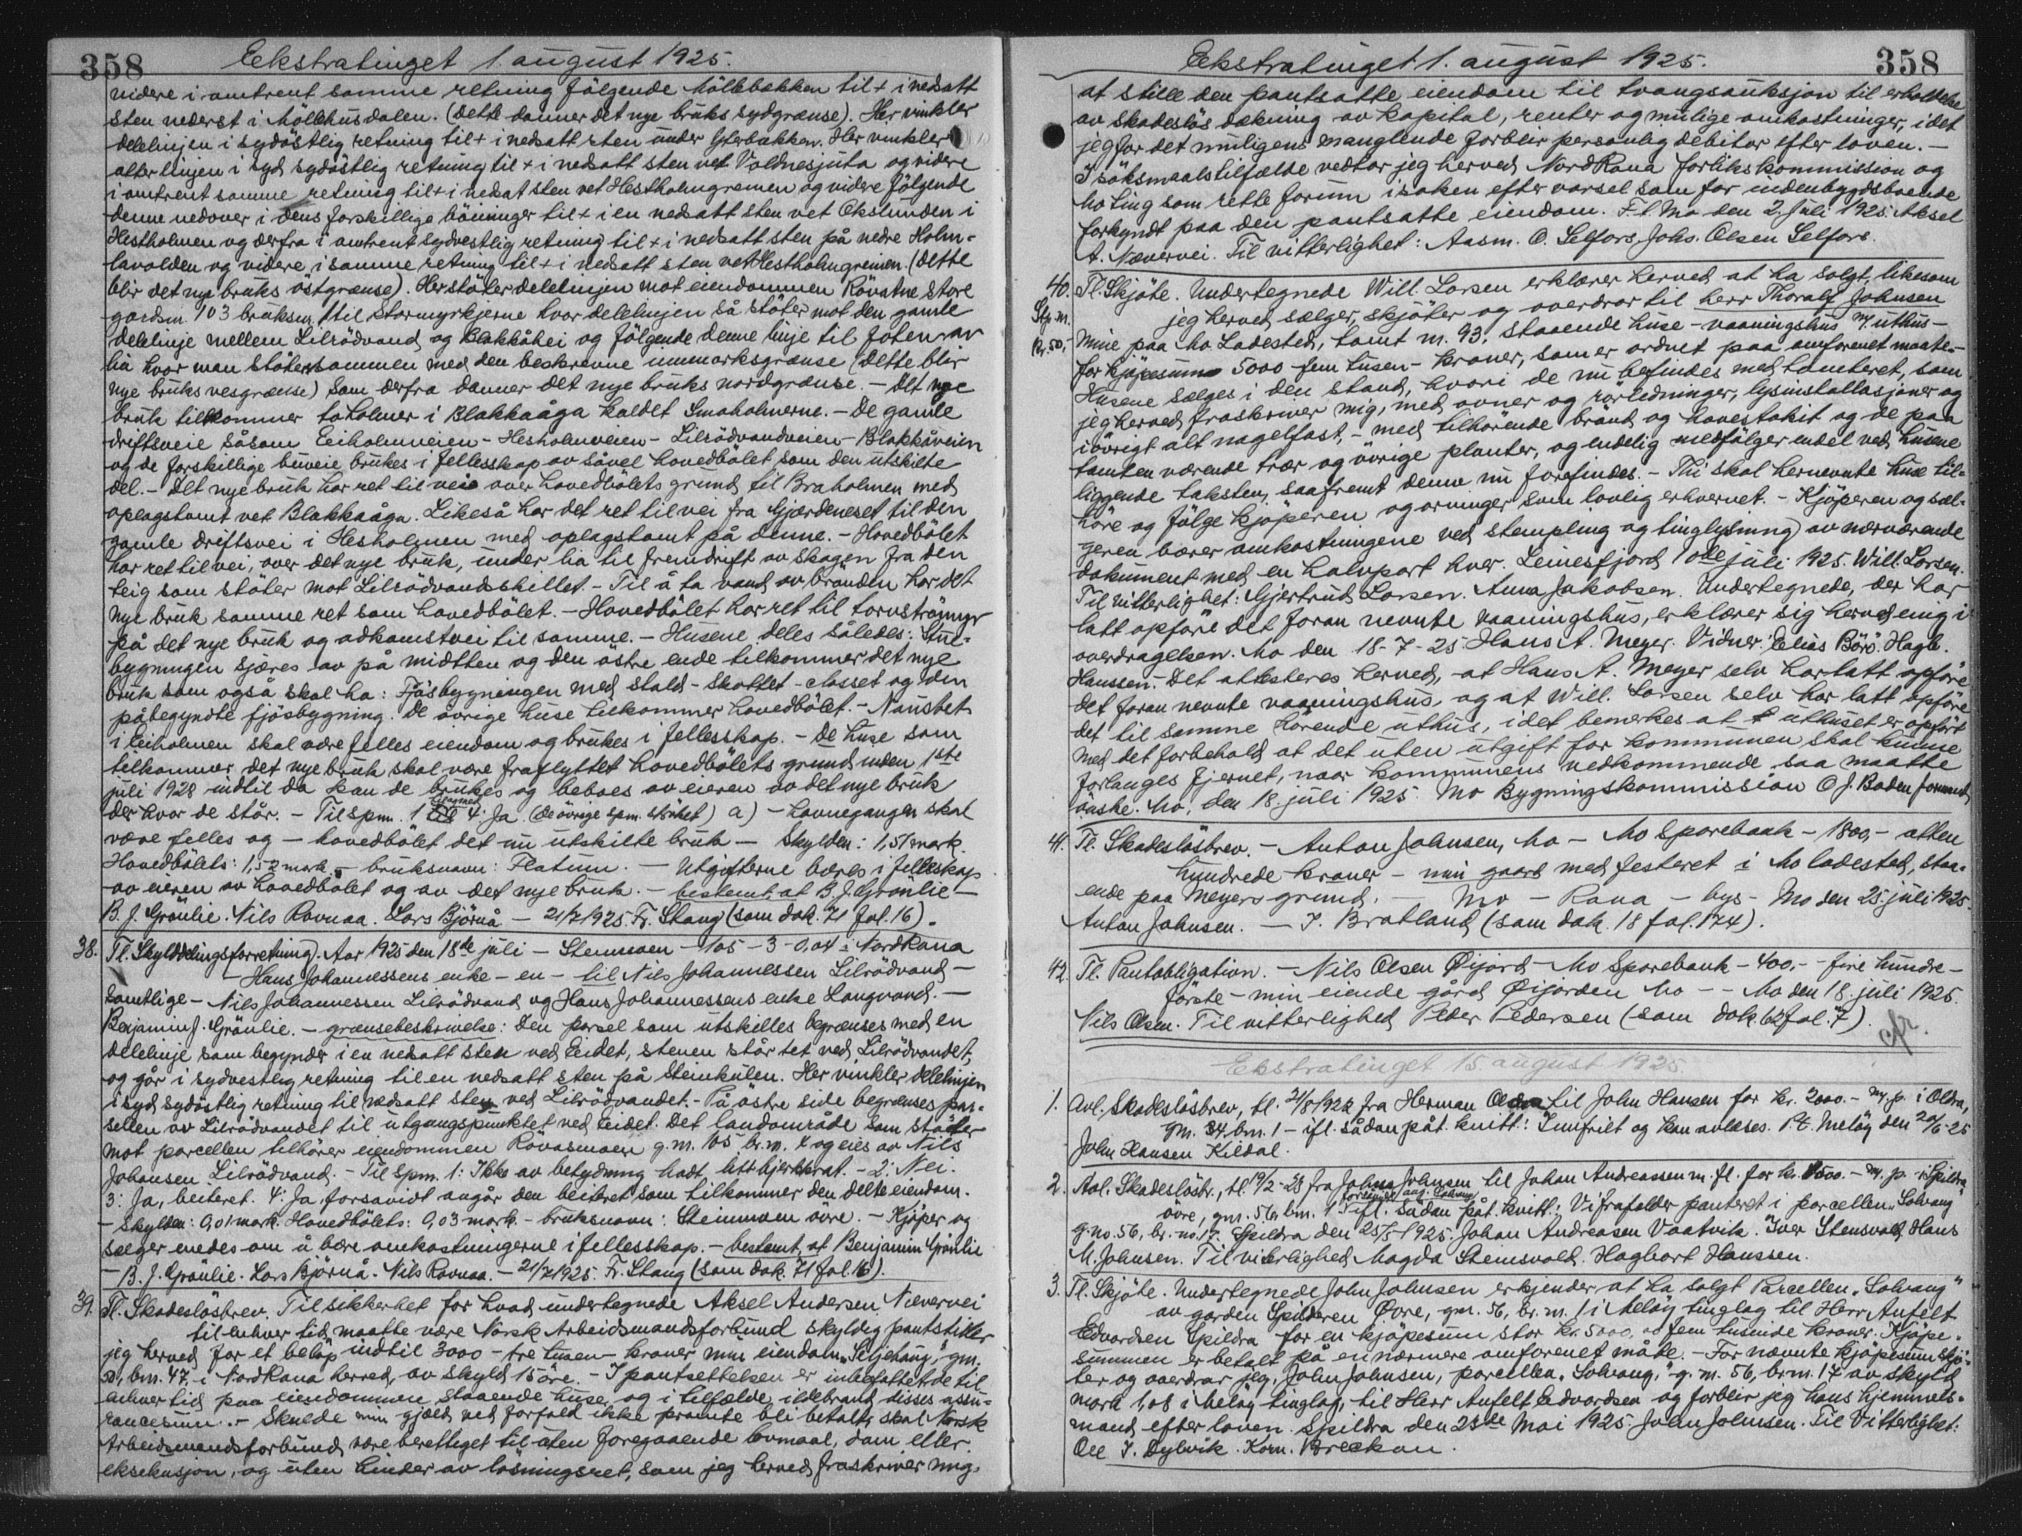 358 Ekstratinget 1. august 1925.
videre i omtrent samme retning følgende Möllebakken til + i nedsatt
sten nederst i Möllehusdalen. (Dette danner det nye bruks sydgrænse). Her vinkler
delelinjen i sydöstlig retning til + i nedsatt sten under Ytterbakken. Her vinkler
atter linjen i syd sydöstlig retning til + i nedsatt sten vet Voldnesjuta og videre
i omtrent samme retning til + i nedsat sten vet Hestholmgrenen og videre fölgende
denne nedover i dens forskillige böininger til + i en nedsatt sten vet Okslunden i
Hestholmen og derfra i omtrent sydvestlig retning til + i nedsatt sten på nedre Holm-
lavolden og videre i samme retning til + i nedsatt sten vet Hestholmgreinen. (Dette
blir det nye bruks östgrænse). Her stöter delelinjen mot eiendommen Rövatne store
gardsn. 103 bruksnr. 1 til Stormyrkjerne hvor delelinjen så stöter mot den gamle
delelinje mellem Lilrödvand og Blakkåhei og fölgende denne linje til foten av
lia hvor man stöter sammen med den beskrevne inmarksgrænse (dette blir
nye bruks vesgrænse) som derfra danner det nye bruks nordgrænse. - Det nye
bruk tilkommer to holmer i Blakkaåga kaldet Smaholmerne. - De gamle
driftsveie såsom Eeiholmveien - Hesholmveien - Lilrödvandveien - Blakkåveien
og de forskillige buveie brukes i fellesskap av såvel hovedbölet som den utskilte
del. - Det nye bruk har ret til veie over hovedbölets grund til Braholmen med
oplagstomt vet Blakkaåga. Likeså har det ret til vei fra Gjærdeneset til den
gamle driftsvei i Hesholmen med oplagstomt på denne. - Hovedbölet
har ret til vei, over det nye bruk, under lia til fremdrift av skogen fra den
teig som stöter mot Lilrödvandskillet. - Til å ta vand av brönden har det
nye bruk samme ret som hovedbölet. - Hovedbölet har ret til torvströmyr
på det nye bruk og adkomstvei til samme. - Husene deles således: Stue-
bygningen sjæres av på midtten og den östre ende tilkommer det nye
bruk som også skal ha: Fjösbygningen med stald - skottet - closset og den
påbegyndte fjösbygning. De övrige huse tilkommer hovedbölet. - Naustet
i Eeiholmen skal være felles eiendom og brukes i fellesskap. - De huse som
tilkommer det nye bruk skal være fraflyttet hovedbölets grund inden 1ste
juli 1928 indtil da kan de brukes og beboes av eieren av det nye bruk
der hvor de står. - Til spm. 1 4: Ja (De övrige spm. ströket) a) - havnegangen skal
være felles og - hovedbölet det nu utskilte bruk - Skylden: 1,51 mark.
Hovedbölets: 1,52 mark - bruksnavn: Platum. - Utgifterne bæres i fellesskap
av eieren av hovedbölet og av det nye bruk. - bestemt, at B. J. Grönlie -
B. J. Grönlie. Nils Rovnaa. Lars Björnå - 21/7 1925. Fr. Stang (som dok. 71 fol. 16).
38. Tl. Skylddelingsforretning. Aar 1925 den 18de juli - Stenmoen - 105 - 3 - 0,04 i Nord Rana
Hans Johannessens enke - en - til Nils Johannessen Lilrödvand -
samtlige - Nils Johannessen Lilrödvand og Hans Johannessens enke Langvand. -
Benjamin J. Grönlie. - grænsebeskrivelse: Den parsel som utskilles begrænses med en
delelinje som begynder i en nedsatt sten ved Eidet, stenen står tet ved Lilrödvandet,
og går i sydvestlig retning til en nedsatt sten på Steinkulen. Her vinkler delelinjen
i syd sydöstlig retning til nedsatt sten ved Lilrödvandet. - På östre side begrænses par-
sellen av Lilrödvandet til utgangspunktet ved Eidet. Det landområde som stöter
mot parcellen tilhörer eiendommen Rövasmoen g.nr. 105 br.nr. 4 og eies av Nils
Johansen Lilrödvand. - Til spm. 1: Ikke av betydning hadt litt bjerkkrat. - 2: Nei.
3: Ja, beiteret. 4: Ja, forsavidt angår den beiteret som tilkommer den delte eiendom.
- Skylden: 0,01 mark. Hovedbölets: 0,03 mark - bruksnavn: Steinmoen övre. - Kjöper og
sælger enedes om å bære omkostningerne i fellesskap. - bestemt, at Benjamin Grönlie
- B. J. Grönlie. Lars Björnå. Nils Rovnaa. - 21/7 1925. Fr. Stang (som dok. 71 fol. 16).
39. Tl. Skadeslösbrev. Til sikkerhet for hvad undertegnede Aksel Andersen Nævervei
til enhver tid maatte være Norsk Arbeidsmandsforbund skyldig pantstiller
jeg herved for et belöp indtil 3000 - tre tusen - kroner min eiendom "Seljehaug", gnr.
bnr. 47 i Nord Rana herred, av skyld 15 öre. - I pantsettelsen er inbefattet de til
enhver tid paa eiendommen staaende huse og i tilfælde ildebrand disses assu-
rancesum. - Skulde min gjæld ved forfald ikke promte bli betalt, skal Norsk
Arbeidsmandsforbund være berettiget til uten foregaaende lovmaal, dom eller
eksekusjon, og uten hinder av løsningsret, som jeg herved fraskriver mig,
Ekstratinget 1. august 1925. 358
at stille den pantsatte eiendom til tvangsauksjon til erholdelse
av skadeslös dækning av kapital, renter og mulige omkostninger, idet
jeg for det muligens manglende forblir personlig debitor efter loven. -
I söksmaalstilfælde vedtar jeg herved Nord Rana forlikskommission og
Mo ting som rette forum i saken efter varsel som for indenbygdsboende
forkyndt paa den pantsatte eiendom. P.t. Mo den 2. juli 1925. Aksel
A. Nævervei. Til vitterlighet: Aasm. O. Selfors, Johs. Olsen Selfors.
40. Tl. Skjöte. Undertegnede Will. Larsen erklærer herved at ha solgt, likesom
Stp. m. jeg herved sælger, skjöter og overdrar til herr Thoralf Johnsen
Kr. 50,- mine paa Mo Ladested, tomt nr. 93, staaende huse - vaaningshus m. uthus -
for kjöpesum 5000 - fem tusen - kroner, som er ordnet paa omforenet maate. -
Husene sælges i den stand, hvori de nu befindes med tomteret, som
jeg herved fraskriver mig, med ovner og rörledninger, lysinstallasjoner og
iövrigt alt nagelfast, - med tilhörende brönd og havestakit og de paa
tomten værende trær og övrige planter, og endelig medfölger endel ved husene
liggende taksten, saafremt denne nu forefindes. - Thi skal hernevnte huse til-
höre og fölge kjöperen og arvinger som lovlig erhvervet. - Kjöperen og sæl-
geren bærer omkostningene ved stempling og tinglysning av nærværende
dokument med en halvpart hver. Leinesfjord 10de juli 1925. Will. Larsen.
Til vitterlighet: Gjertrud Larsen. Anna Jakobsen. Undertegnede, der har
latt opföre det foran nevnte vaaningshus, erklærer sig herved enig i
overdragelsen. Mo den 18-7-25 Hans A. Meyer. Vidner: Elias Börö. Hagb.
Hanssen. - Det attesteres herved, at Hans A. Meyer selv har latt opföre
det foran nevnte vaaningshus, og at Will. Larsen selv har latt opföre
det til samme hörende uthus, idet bemerkes at uthuset er opfört
med det forbehold at det uten utgift for kommunen skal kunne
forlanges fjernet, naar kommunens vedkommende saa maatte
önske. Mo, den 18. juli 1925. Mo Bygningskommission O. J. Baden formand
41. Tl. Skadeslösbrev. - Anton Johnsen, Mo - Mo Sparebank - 1800,- atten
hundrede kroner - min gaard med festeret i Mo ladested, staa-
ende paa Meyers grund, - Mo - Rana - bys - Mo den 25. juli 1925.
Anton Johnsen. - J. Bratland (som dok. 18 fol. 174).
42. Tl. Pantobligation. - Nils Olsen Öijord - Mo Sparebank - 400,- fire hundre -
förste - min eiende gård Öijorden Mo - - Mo den 18. juli 1925.
Nils Olsen. Til vitterlighed Peder Pedersen (som dok. 62 fol. 7).
cfr.
Ekstratinget 15. august 1925.
1. Avl. Skadeslösbrev, tl. fra Herman til John Hansen for kr. 2000.- m. p. i Oldra,
gnr. 34 bnr. 1 - ifl. sådan påt. kvitt.: Innfriet og kan avlæses. P.t. Melöy den 20/6-25
John Hansen Kildal.
2. Avl. Skadeslösbr., tl. 19/2-23 fra Johan Johnsen til Johan Andreassen m. fl. for kr. 5000.- m. p. i Spildra
övre, gnr. 56, bnr. 1. ifl. sådan påt. kvitt.: Vi frafalder panteret i parcellen "Solvang"
g.no. 56, br.no. 17. Spildra den 25/5-1925. Johan Andreasen Vaatvik. Iver Stensvold, Hans
M. Johnsen. Til vitterlighed Magda Stemsvold. Hagbart Hanssen.
3. Tl. Skjöte. Undertegnede John Johnsen erkjender at ha solgt Parcellen "Solvang"
av garden Spilderen Övre, gnr. 56, br.nr. 1 i Melöy tinglag til Herr Anfelt
Edvardsen Spildra for en kjöpesum stor kr. 5000,00 fem tusinde kroner. Kjöpe-
summen er betalt på en nærmere omforenet måte. - For nævnte kjöpesum skjö-
ter og overdrar jeg, John Johnsen, parcellen "Solvang", g.nr. 56, br.nr. 17 av skyld
mark 1,08 i Melöy tinglag, til Herr Anfelt Edvardsen og forblir jeg hans hjemmels-
mand efter loven. Spildra den 25de Mai 1925. John Johnsen. Til Vitterlighet:
Ole J. Dylwik. Korn. Breckan.